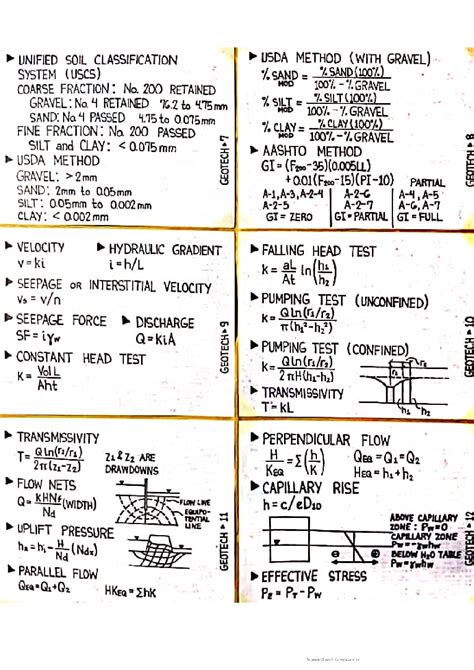 ▶ UNIFIED SOIL CLASSIFICATION
SYSTEM (USCS)
COARSE FRACTION: No. 200 RETAINED
GRAVEL: No. 4 RETAINED 76.2 to 4.75mm
SAND: No. 4 PASSED 4.75 to 0.075mm
FINE FRACTION: No. 200 PASSED
SILT and CLAY: < 0.075mm
▶ USDA METHOD
GRAVEL: > 2mm
SAND: 2mm to 0.05mm
SILT: 0.05mm to 0.002mm
CLAY: < 0.002mm
GEOTECH ▶ 7
▶ USDA METHOD (WITH GRAVEL)
% SAND MOD = % SAND (100%) / 100% - % GRAVEL
% SILT MOD = % SILT (100%) / 100% - % GRAVEL
% CLAY MOD = % CLAY (100%) / 100% - % GRAVEL
▶ AASHTO METHOD
GI = (F200-35)(0.005LL)
+ 0.01(F200-15)(PI-10) PARTIAL
A-1, A-3, A-2-4 A-2-6 A-4, A-5
A-2-5 A-2-7 A-6, A-7
GI = ZERO GI = PARTIAL GI = FULL
GEOTECH ▶ 8
▶ VELOCITY
v = ki
▶ HYDRAULIC GRADIENT
i = h/L
▶ SEEPAGE OR INTERSTITIAL VELOCITY
vs = v/n
▶ SEEPAGE FORCE
SF = iγw
▶ DISCHARGE
Q = kiA
▶ CONSTANT HEAD TEST
K = Vol L / Aht
GEOTECH ▶ 9
▶ FALLING HEAD TEST
K = aL/At ln(h1/h2)
▶ PUMPING TEST (UNCONFINED)
K = Q ln(r1/r2) / π(h1²-h2²)
▶ PUMPING TEST (CONFINED)
K = Q ln(r1/r2) / 2πH(h1-h2)
▶ TRANSMISSIVITY
T = KL
r1
r2
h1 h2
GEOTECH ▶ 10
▶ TRANSMISSIVITY
T = Q ln(r1/r2) / 2π(z1-z2)
z1 & z2 ARE
DRAWDOWNS
▶ FLOW NETS
Q = KHNf/Nd (WIDTH)
FLOW LINE
EQUIPO-
TENTIAL
LINE
▶ UPLIFT PRESSURE
hx = h1 - H/Nd (Ndx)
▶ PARALLEL FLOW
QEQ = Q1 + Q2 HKEQ = ΣhK
GEOTECH ▶ 11
▶ PERPENDICULAR FLOW
H/KEQ = Σ(h/K)
QEQ = Q1 = Q2
HEQ = h1 + h2
▶ CAPILLARY RISE
h = c/eD10
ABOVE CAPILLARY
ZONE: PW = 0
CAPILLARY ZONE
PW = -γwhw
BELOW H2O TABLE
PW = γwhw
▶ EFFECTIVE STRESS
PE = PT - PW
GEOTECH ▶ 12